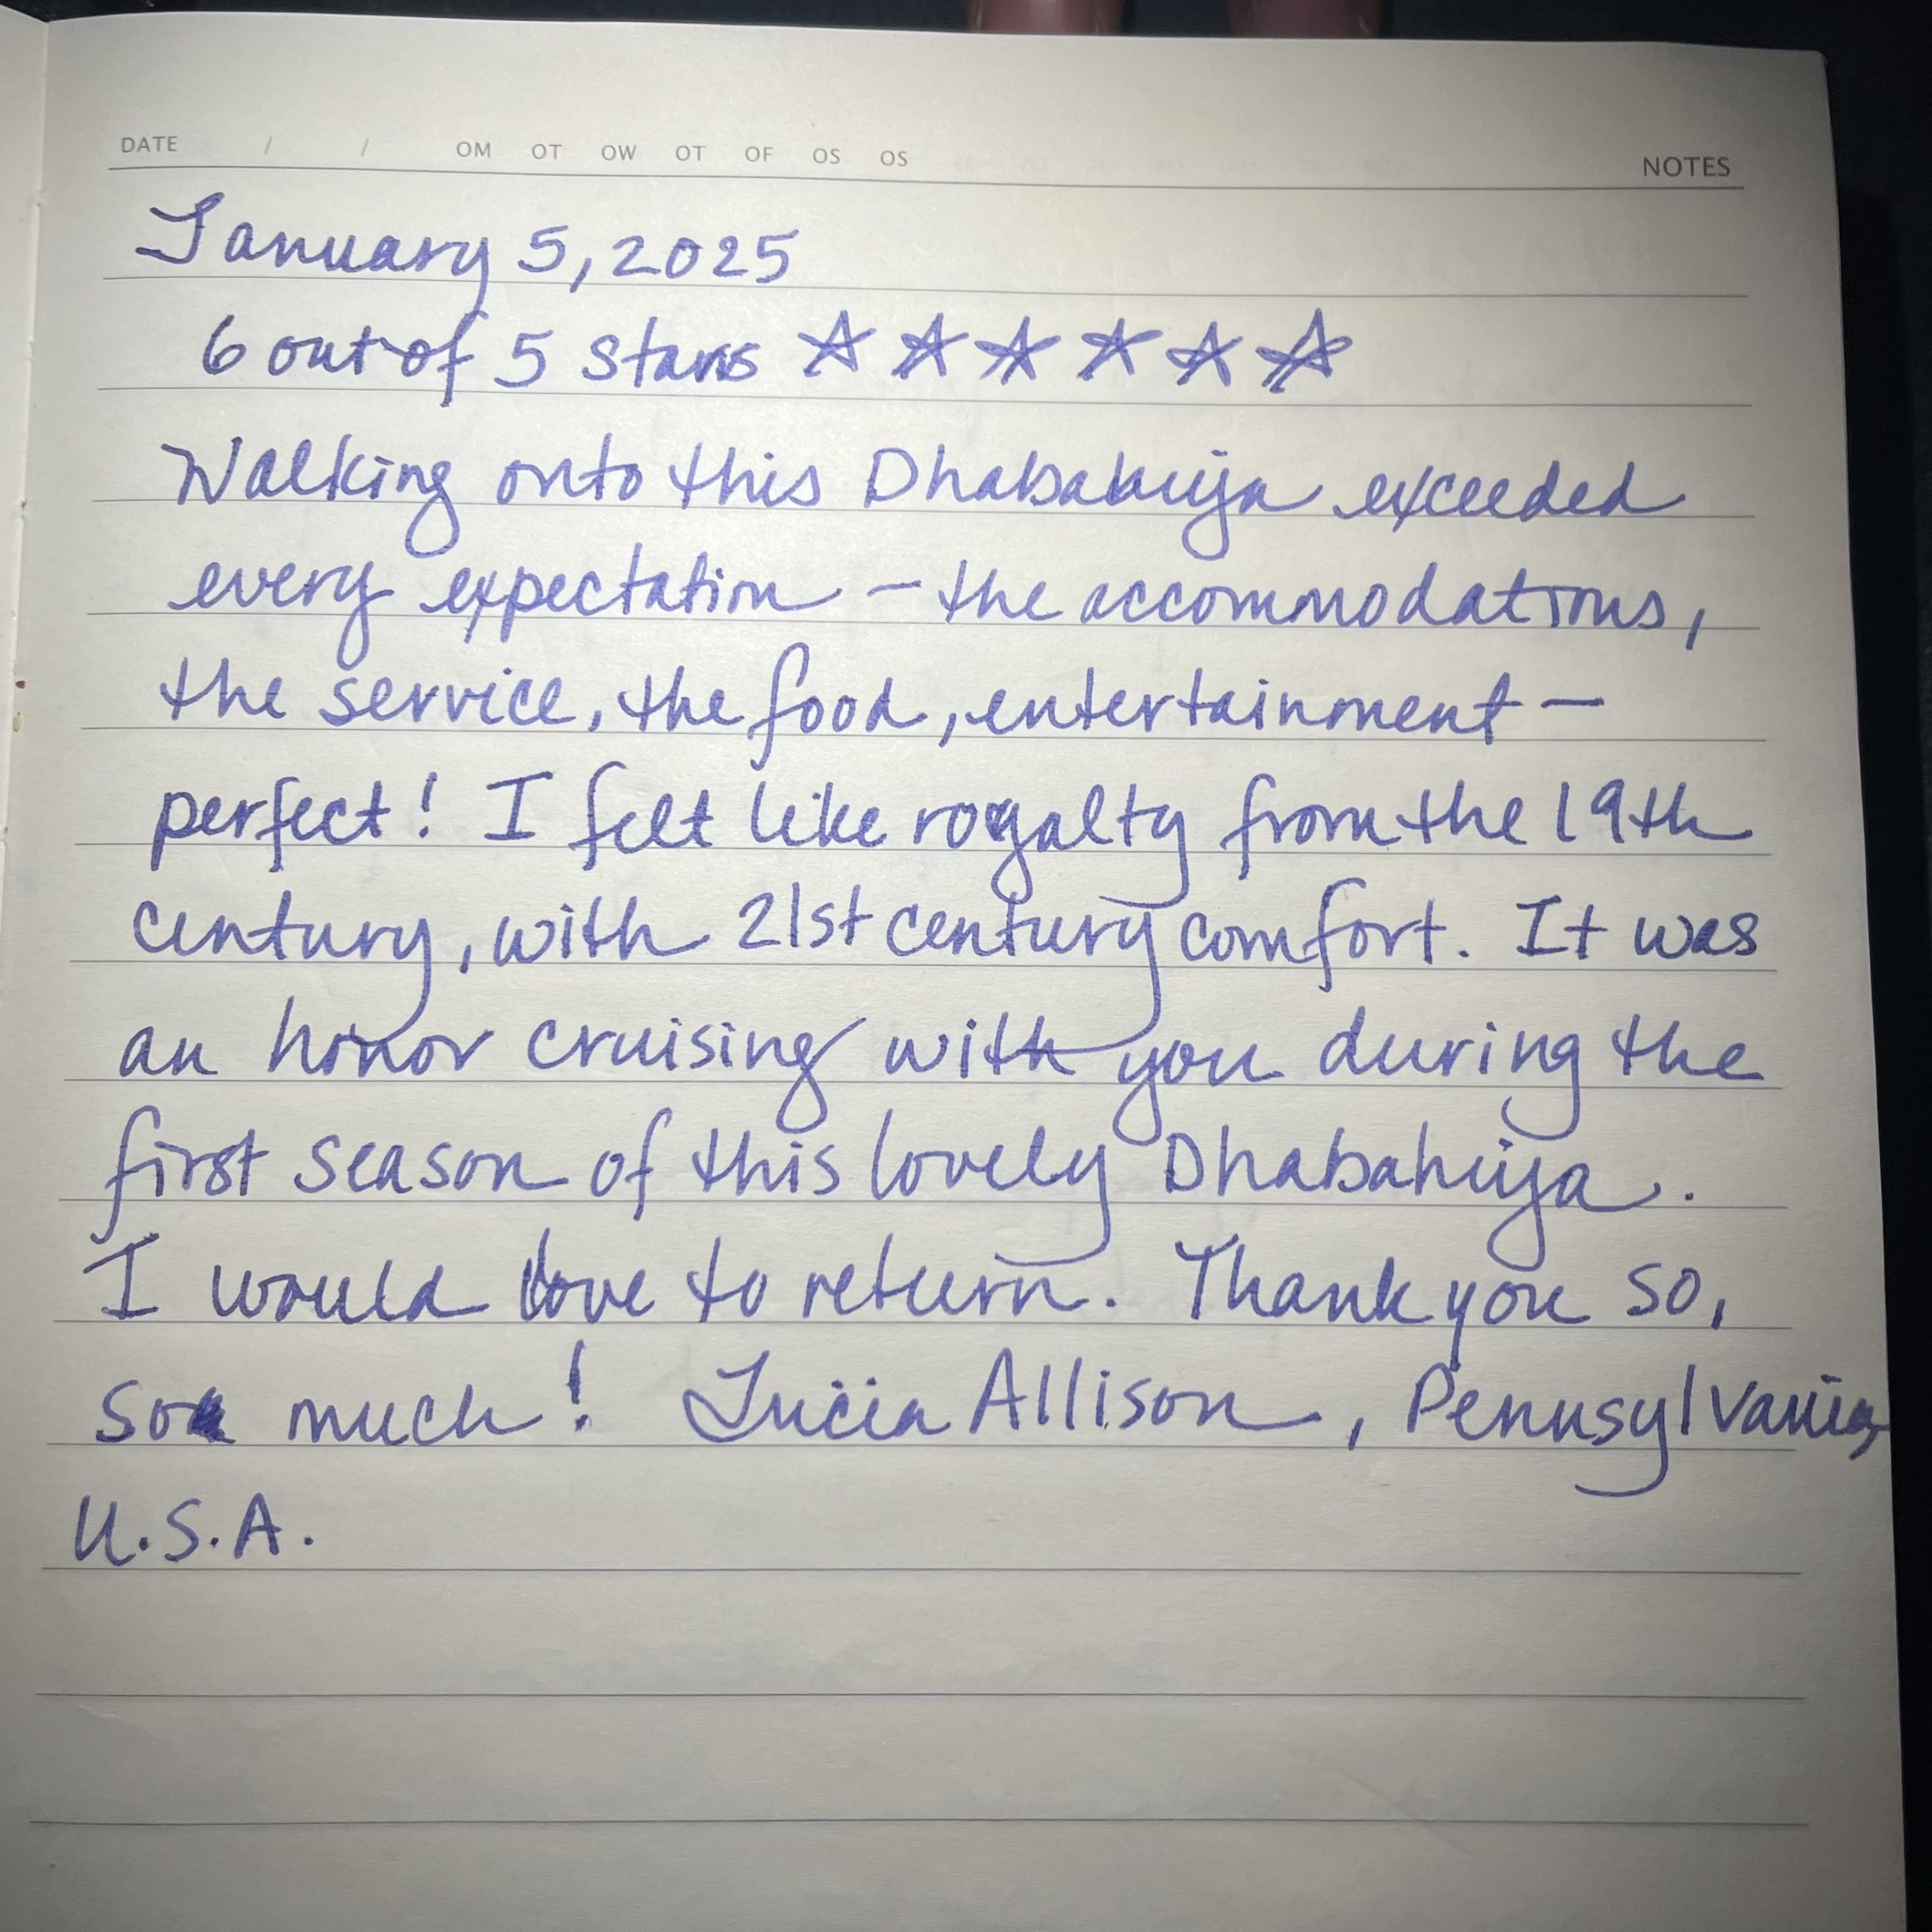 DATE / / OM OT OW OT OF OS OS NOTES
January 5, 2025
6 out of 5 stars ☆ ☆ ☆ ☆ ☆ ☆
Walking onto this Dhabahiya exceeded
every expectation – the accommodations,
the service, the food, entertainment –
perfect! I felt like royalty from the 19th
century, with 21st century comfort. It was
an honor cruising with you during the
first season of this lovely Dhabahiya.
I would love to return. Thank you so,
so much! Lucia Allison, Pennsylvania,
U.S.A.